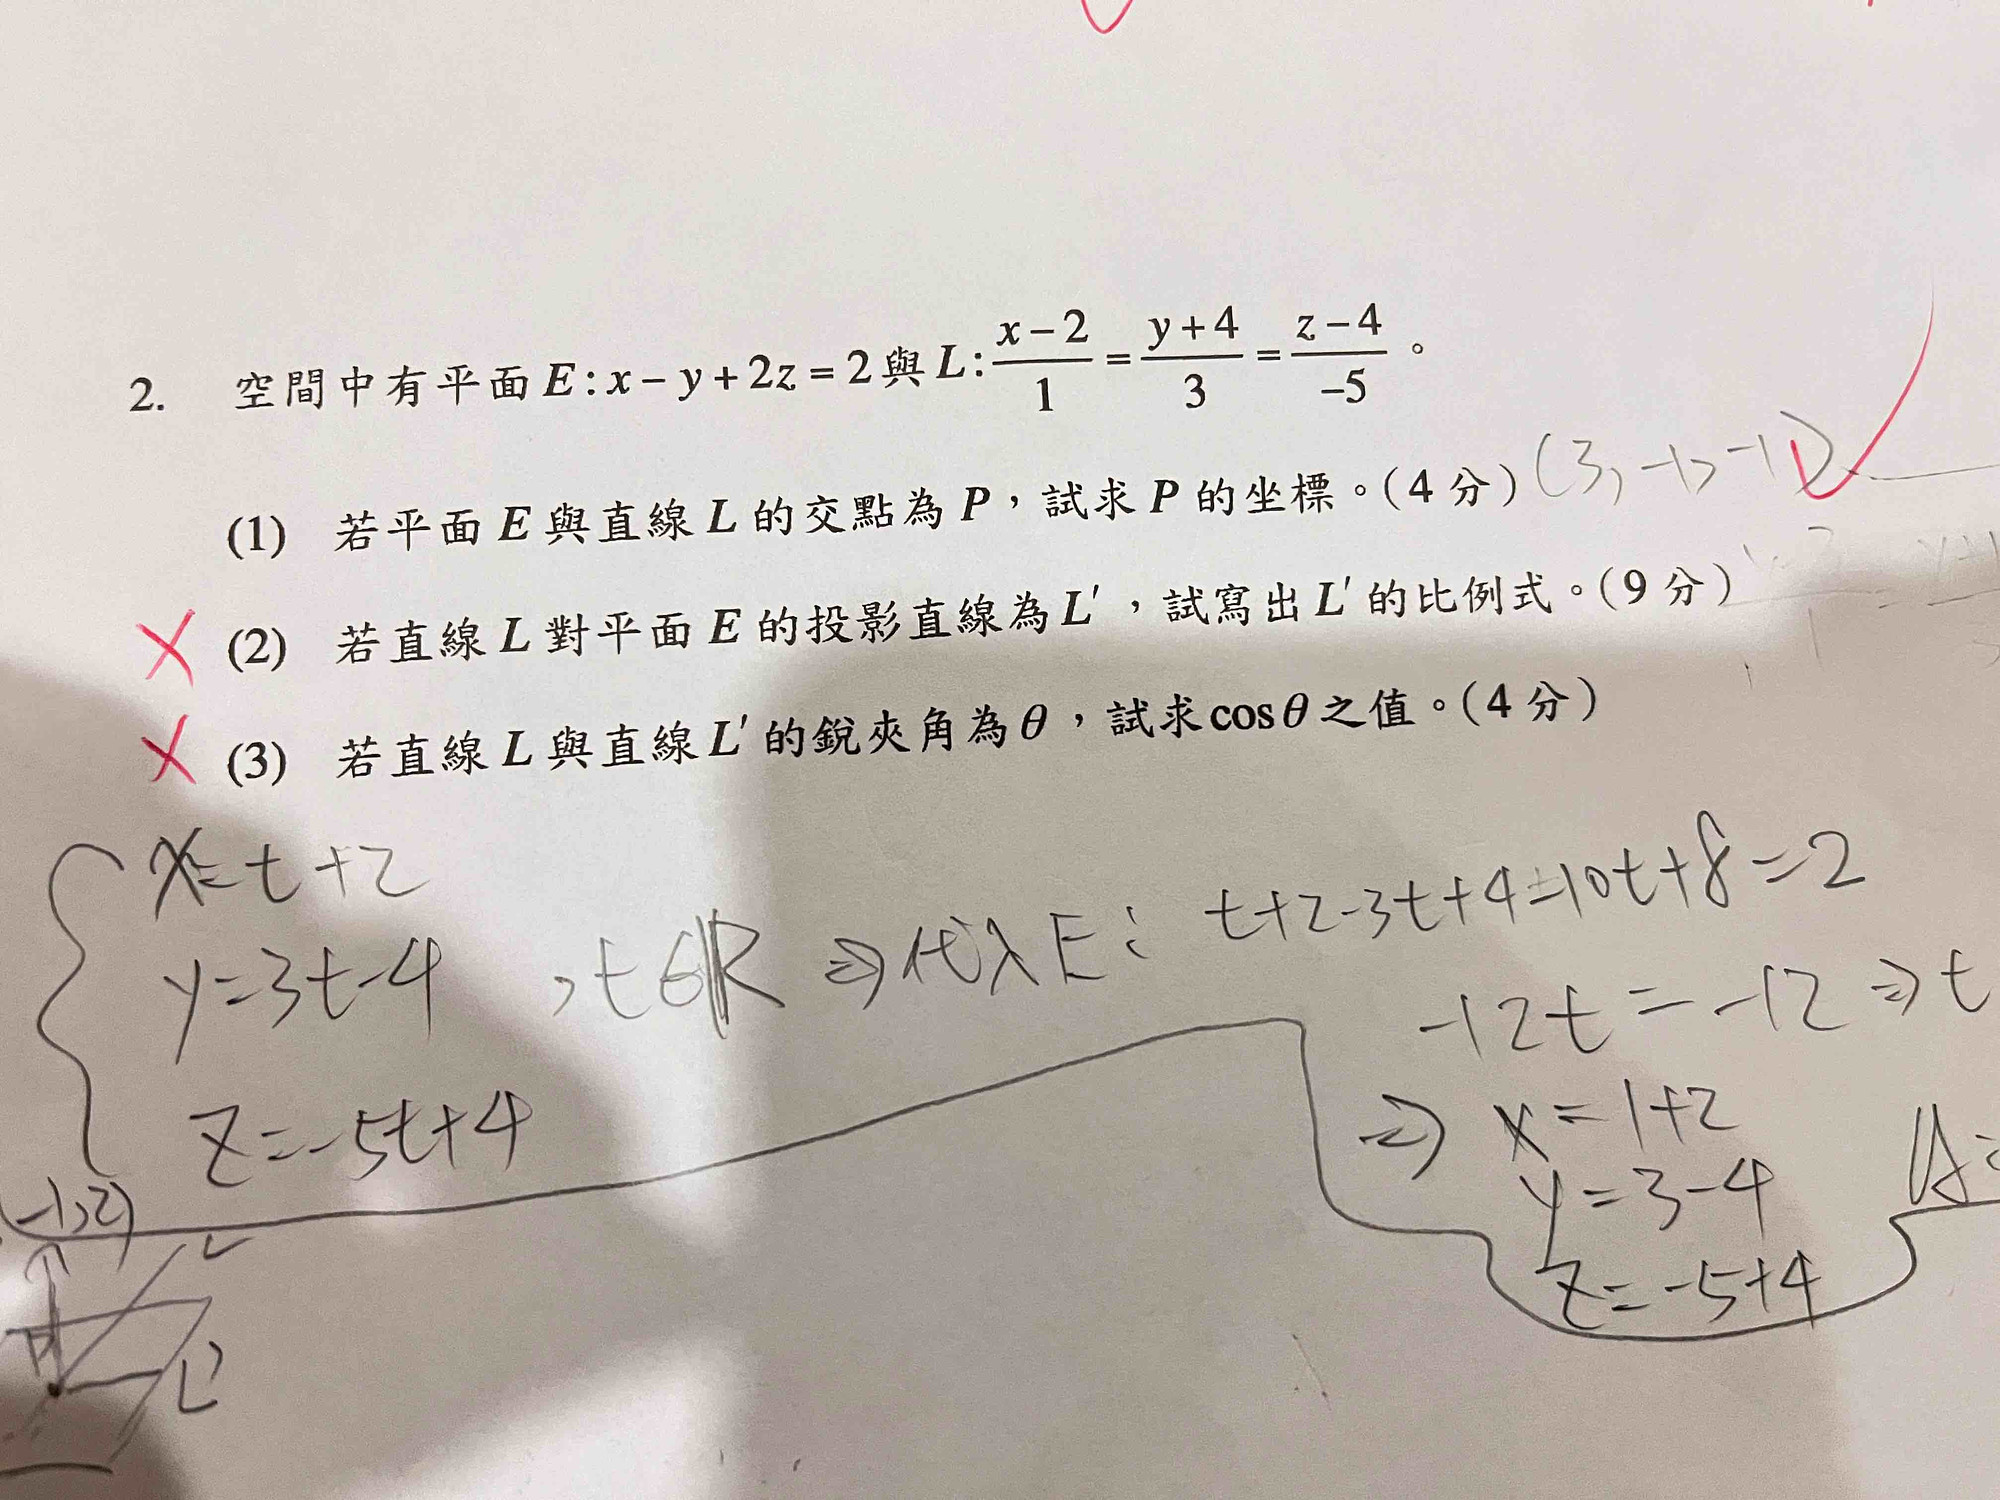 2. 空間中有平面 E:x-y+2z=2與 L:\frac{x-2}{1}=\frac{y+4}{3}=\frac{z-4}{-5}。
(1) 若平面 E 與直線 L 的交點為 P，試求 P 的坐標。(4 分) (3,-1,-1)
(2) 若直線 L 對平面 E 的投影直線為 L'，試寫出 L' 的比例式。(9 分)
(3) 若直線 L 與直線 L' 的銳夾角為 θ，試求 cosθ 之值。(4 分)
x=t+2
y=3t-4 , t∈R ⇒ 代入 E: t+2-3t+4-10t+8=2
z=-5t+4
-12t=-12 ⇒ t
⇒ x=1+2
y=3-4
z=-5+4
-1,2)
L
L'